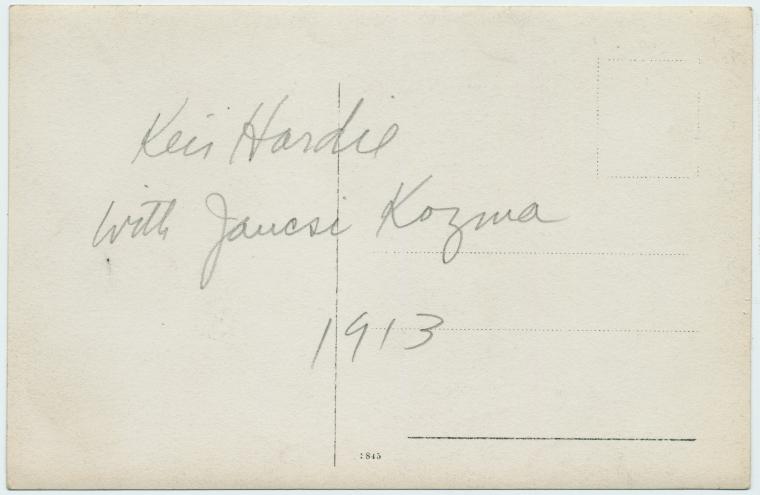 Keir Hardie
with Jancsi Kozma
1913
:845